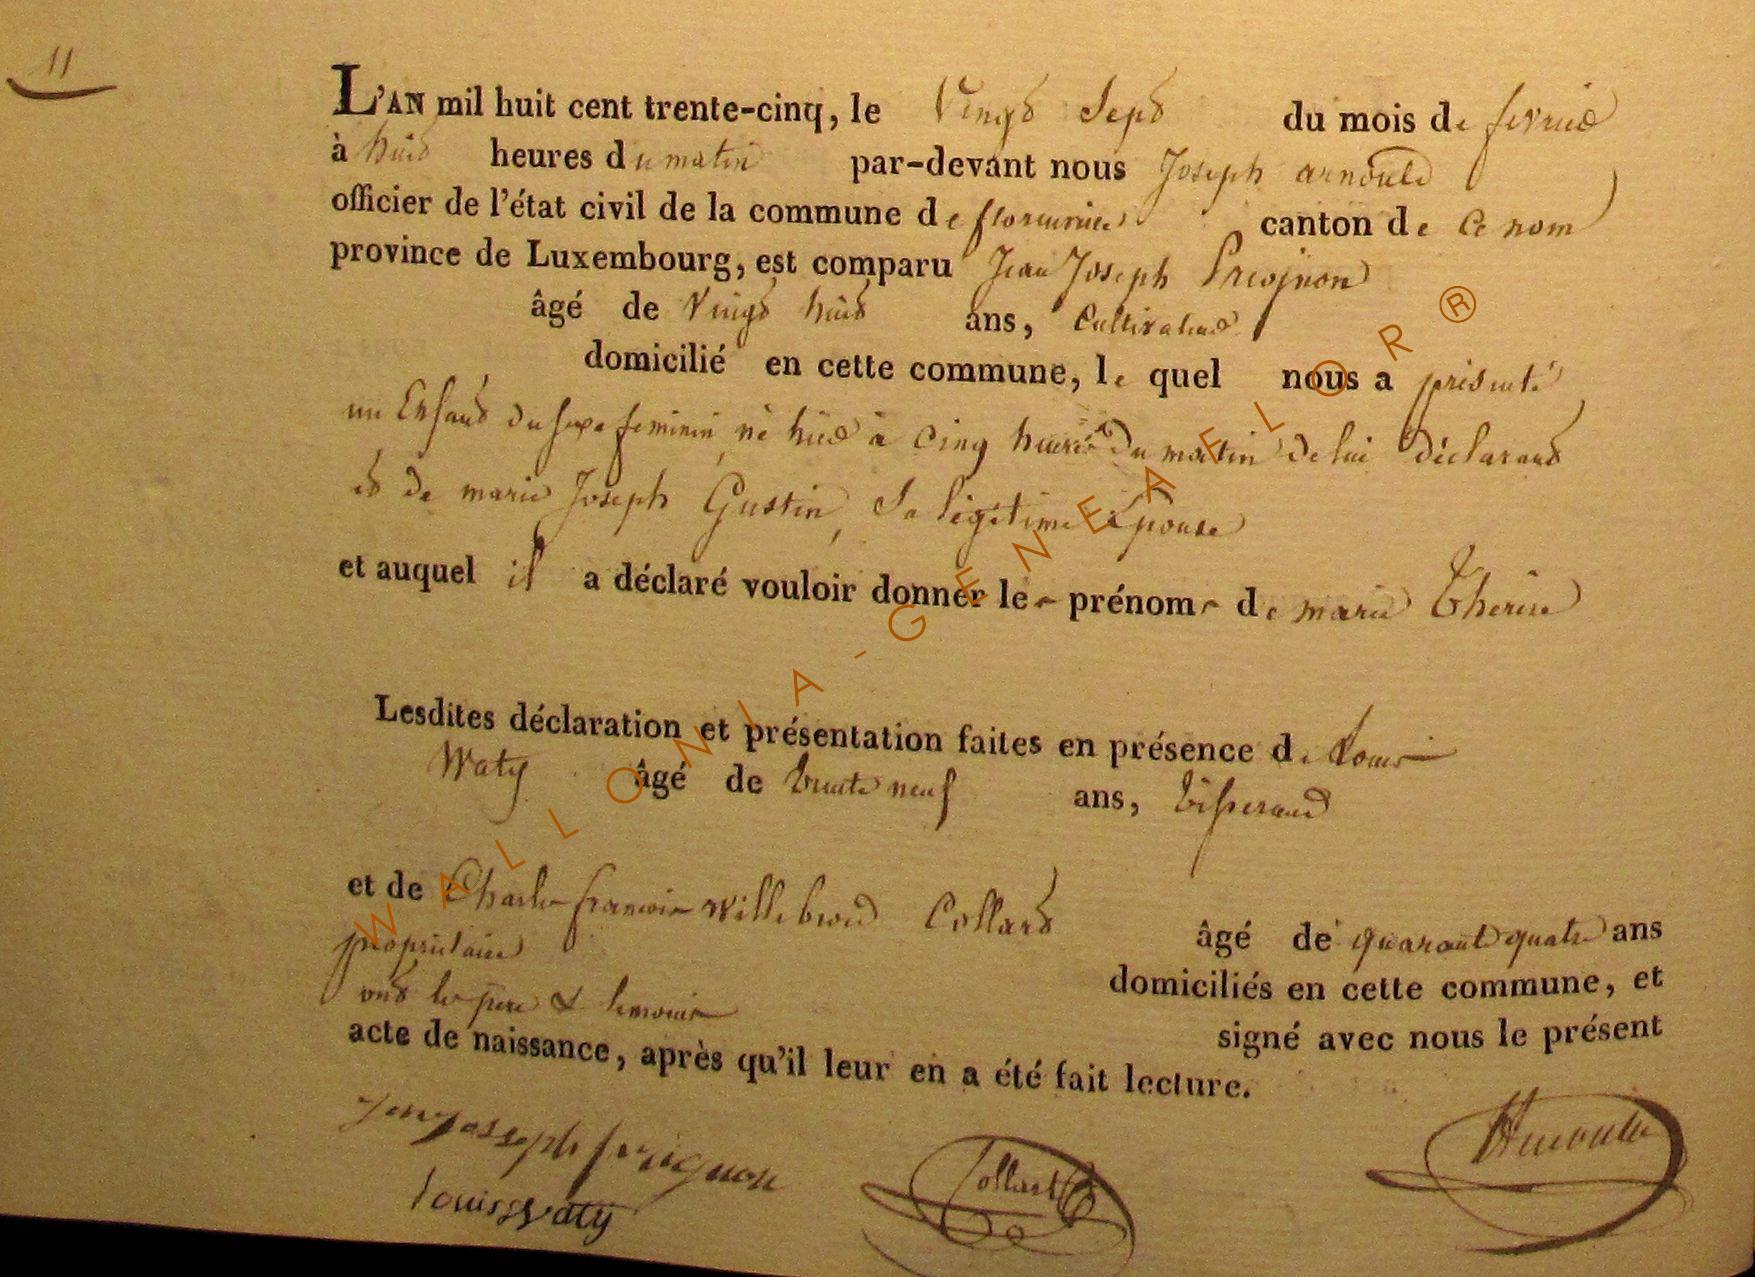 11
L'AN mil huit cent trente-cinq, le Vingt Sept du mois de fevrier
à huit heures du matin par-devant nous Joseph arnould
officier de l'état civil de la commune de florenville canton de ce nom
province de Luxembourg, est comparu Jean Joseph Prevignon
âgé de Vingt huit ans, Cultivateur
domicilié en cette commune, le quel nous a présenté
un Enfant du sexe feminin né hier à cinq heures du matin de lui déclarant
et de marie Joseph Gustin, Sa légitime Epouse
et auquel il a déclaré vouloir donner les prénoms de marie Therese
Lesdites déclaration et présentation faites en présence de Louis
Waty âgé de trente neuf ans, tisserand
et de Charles françois Willebrord Collard âgé de quarante quatre ans
propriétaire domiciliés en cette commune, et
ont les pere & temoins signé avec nous le présent
acte de naissance, après qu'il leur en a été fait lecture.
jean josseph
louis waty
Collard
Arnould
WALLONIA-GENEAFLOR®